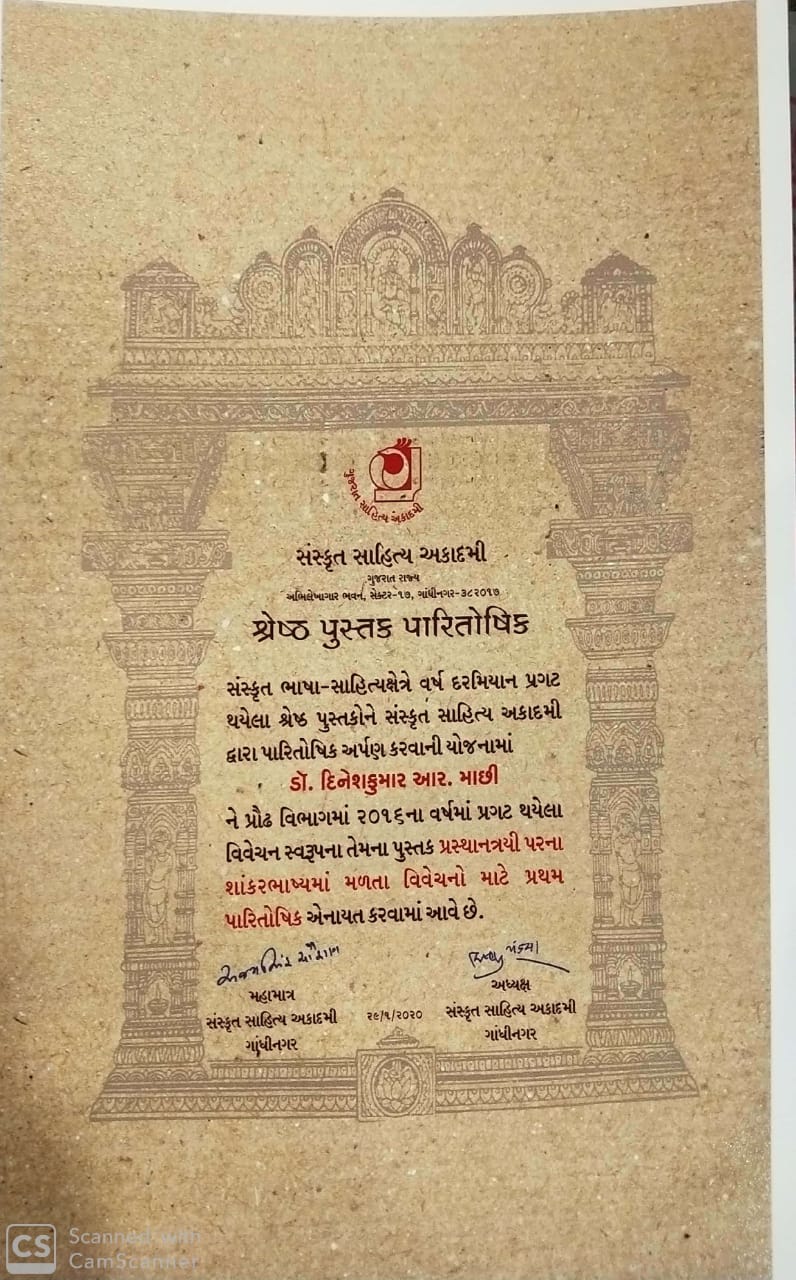 ગુજરાત સાહિત્ય અકાદમી
સંસ્કૃત સાહિત્ય અકાદમી
ગુજરાત રાજ્ય
અભિલેખાગાર ભવન, સેક્ટર-૧૭, ગાંધીનગર-૩૮૨૦૧૭
શ્રેષ્ઠ પુસ્તક પારિતોષિક
સંસ્કૃત ભાષા-સાહિત્યક્ષેત્રે વર્ષ દરમિયાન પ્રગટ
થયેલા શ્રેષ્ઠ પુસ્તકોને સંસ્કૃત સાહિત્ય અકાદમી
દ્વારા પારિતોષિક અર્પણ કરવાની યોજનામાં
ડૉ. દિનેશકુમાર આર. માછી
ને પ્રૌઢ વિભાગમાં ૨૦૧૬ના વર્ષમાં પ્રગટ થયેલા
વિવેચન સ્વરૂપના તેમના પુસ્તક પ્રસ્થાનત્રયી પરના
શાંકરભાષ્યમાં મળતા વિવેચનો માટે પ્રથમ
પારિતોષિક એનાયત કરવામાં આવે છે.
મહામાત્ર
સંસ્કૃત સાહિત્ય અકાદમી
ગાંધીનગર
૨૯/૧/૨૦૨૦
અધ્યક્ષ
સંસ્કૃત સાહિત્ય અકાદમી
ગાંધીનગર
CS
Scanned with
CamScanner